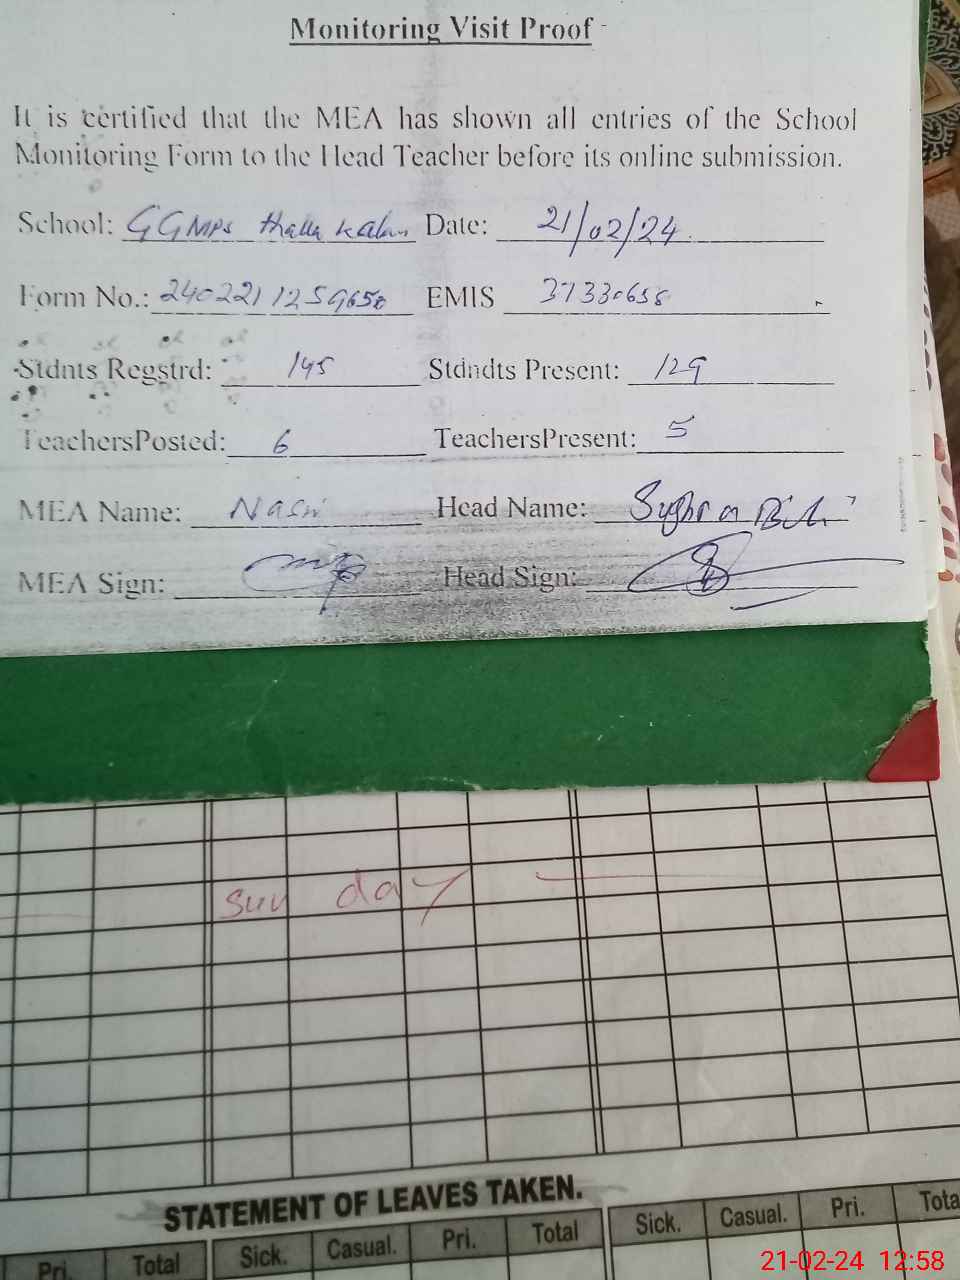 Monitoring Visit Proof
It is certified that the MEA has shown all entries of the School
Monitoring Form to the Head Teacher before its online submission.
School: GGMPS thalla kalan Date: 21/02/24
Form No.: 240221125965 EMIS 37330658
Stdnts Regstrd: 145 Stdndts Present: 129
TeachersPosted: 6 TeachersPresent: 5
MEA Name: Nasir Head Name: Sughra Bibi
MEA Sign: Head Sign:
Sunday
STATEMENT OF LEAVES TAKEN.
Pri. Total Sick. Casual. Pri. Total Sick. Casual. Pri. Tota
21-02-24 12:58